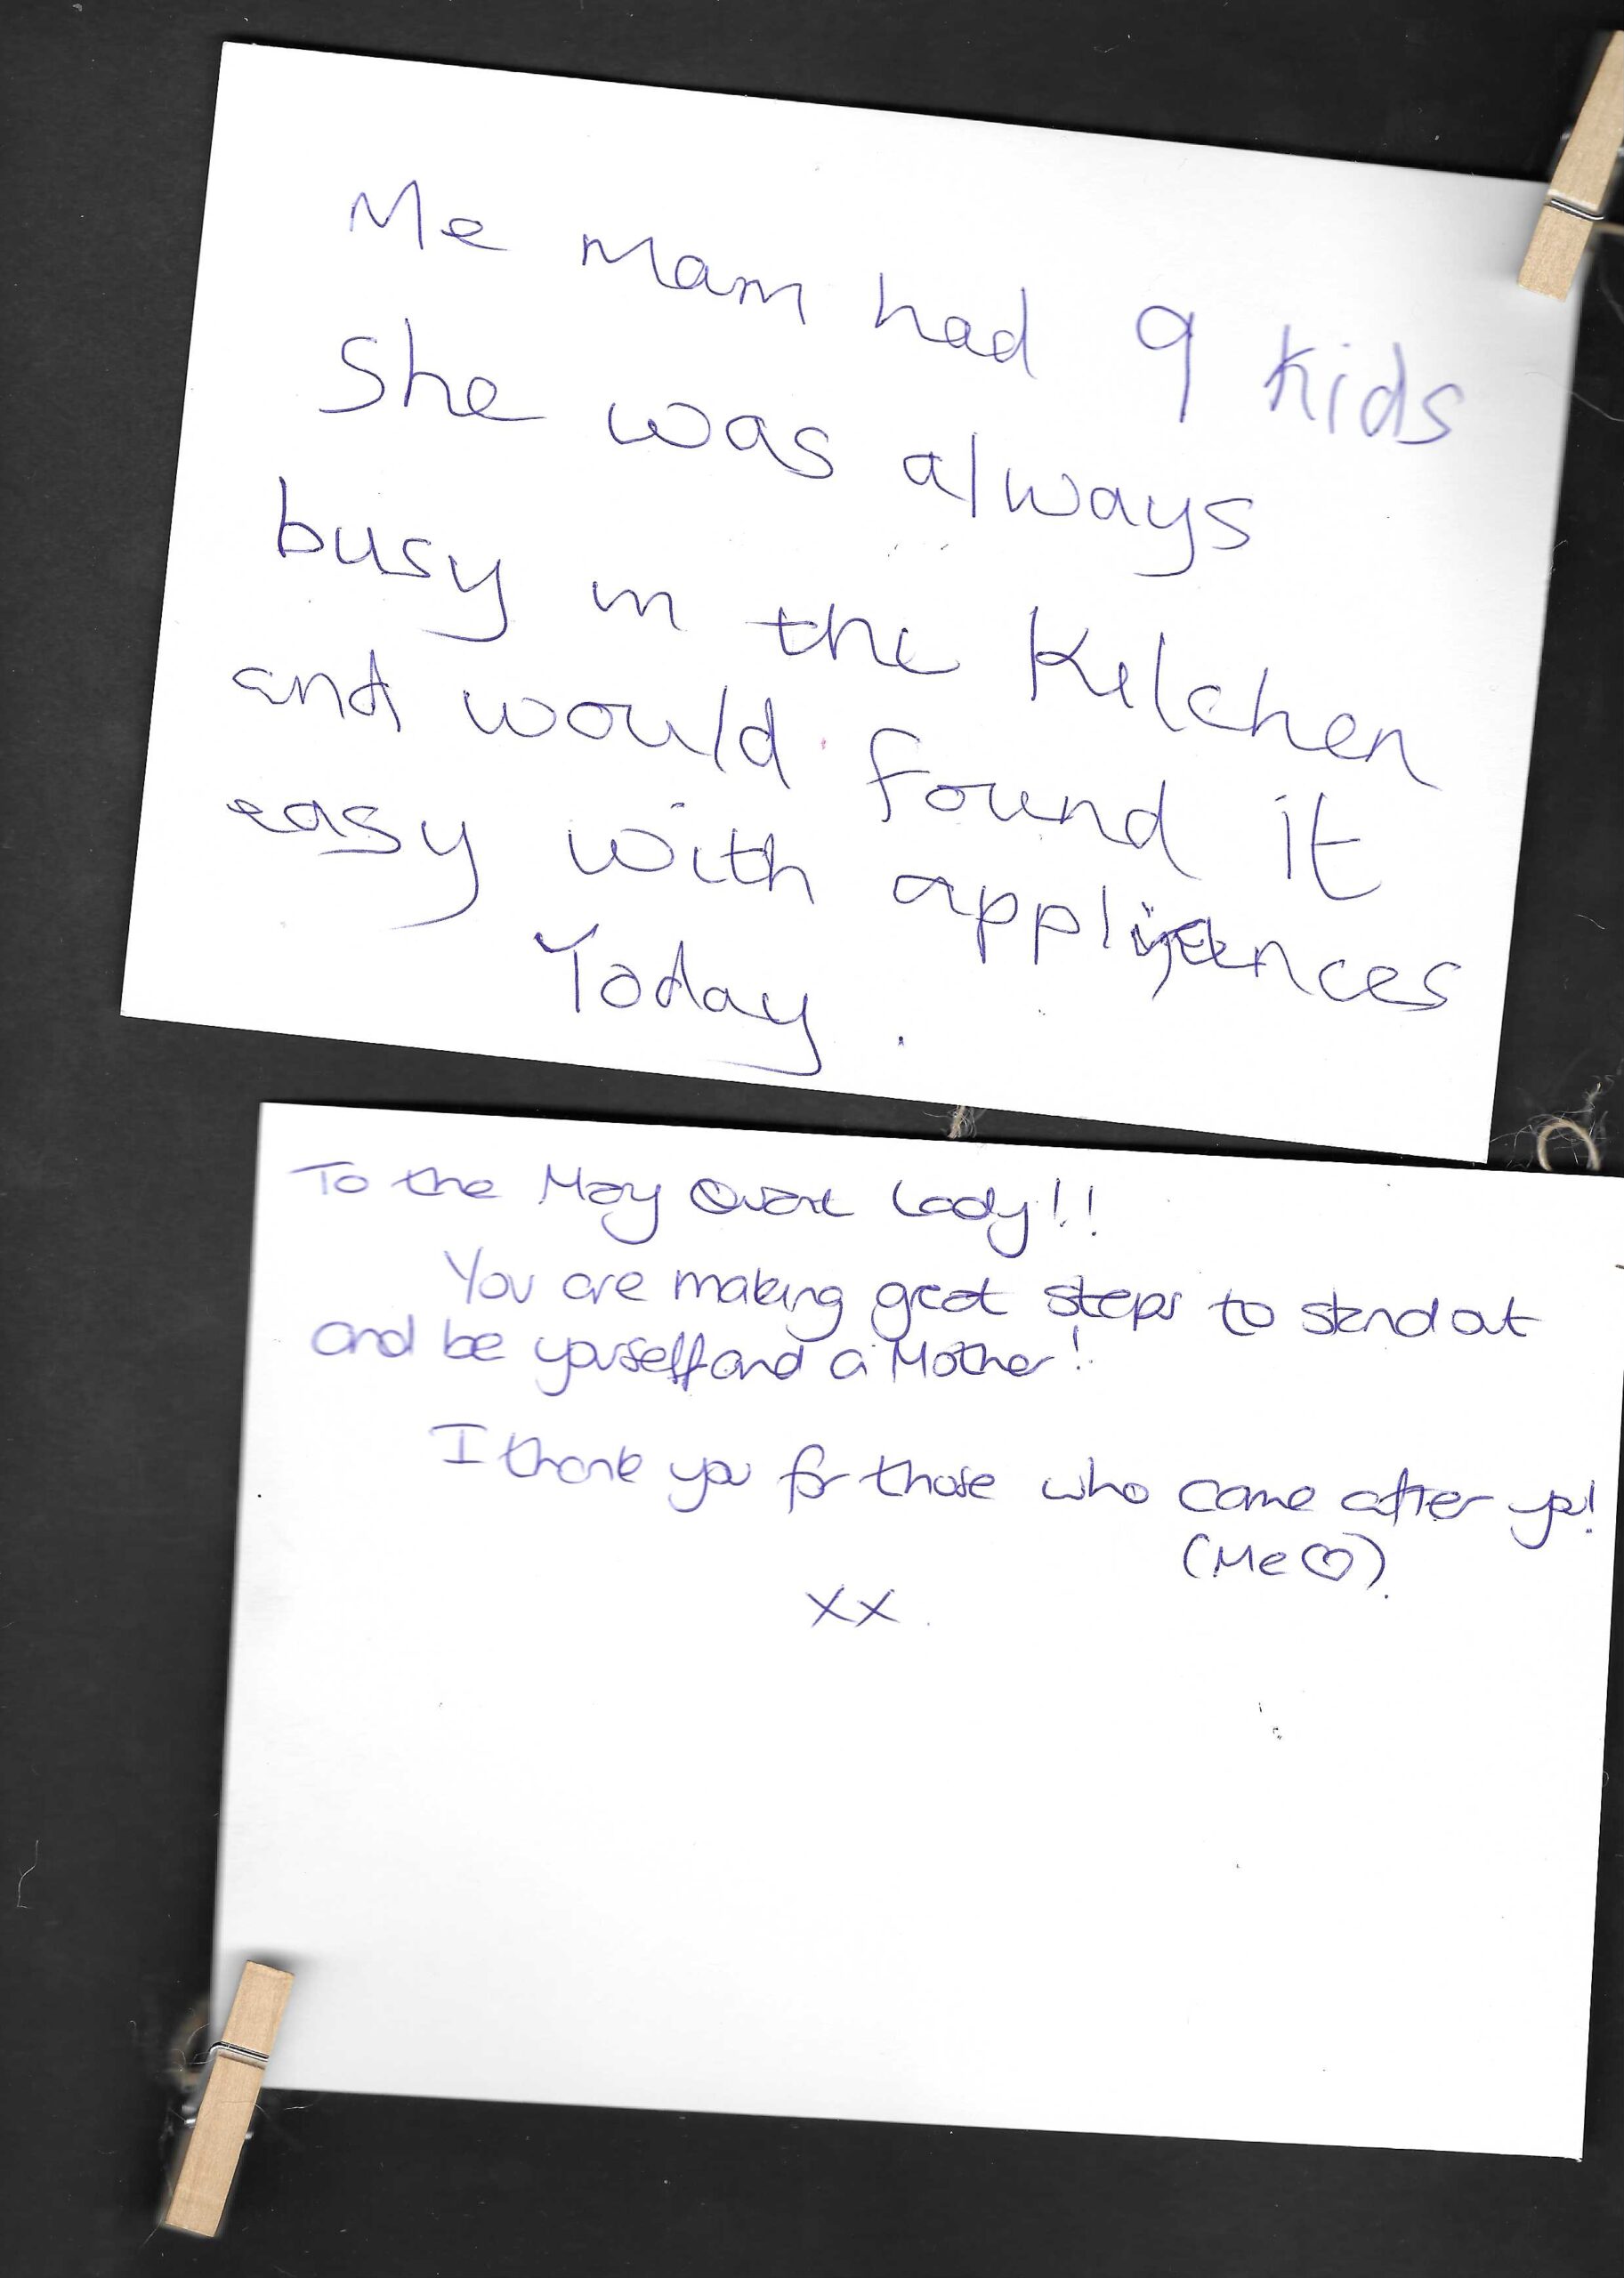 Me Mam had 9 kids
She was always
busy in the Kitchen
and would found it
easy with appliances
Today.
To the Mary Quant Lady!!
You are making great steps to stand out
and be yourself and a Mother!
I thank you for those who came after you!
(Me♡).
XX.